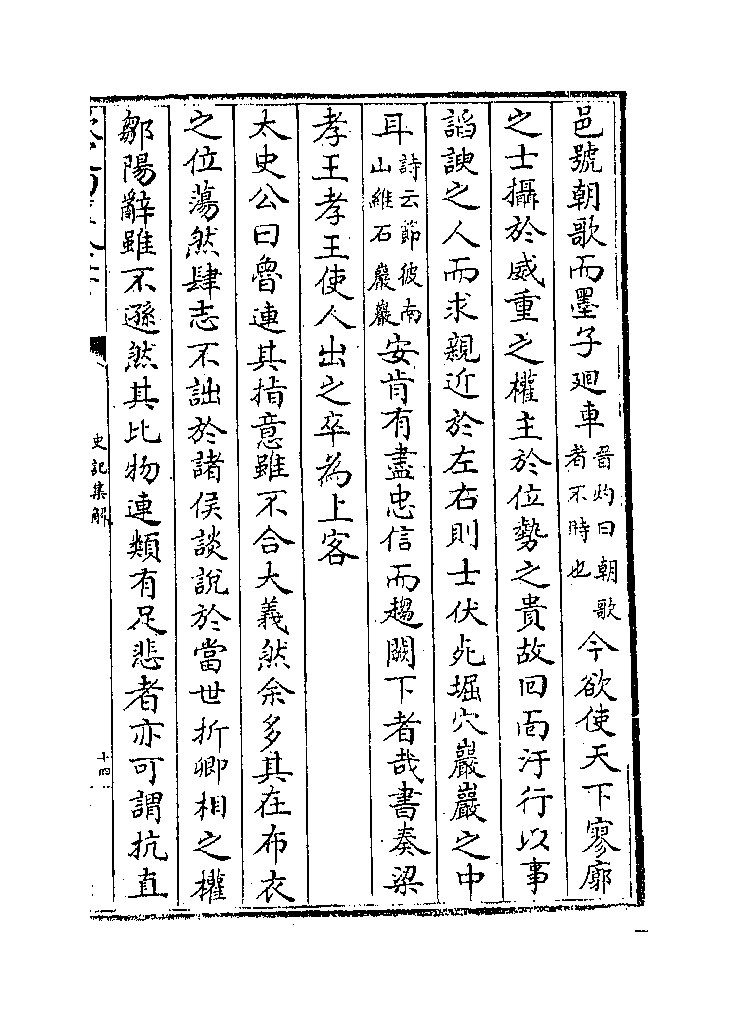 邑號朝歌而墨子廻車晉灼曰朝歌者不時也今欲使天下寥廓
之士攝於威重之權主於位勢之貴故回面汙行以事
諂諛之人而求親近於左右則士伏死堀穴巖巖之中
耳詩云節彼南山維石巖巖安肯有盡忠信而趨闕下者哉書奏梁
孝王孝王使人出之卒為上客
太史公曰魯連其指意雖不合大義然余多其在布衣
之位蕩然肆志不詘於諸侯談說於當世折卿相之權
鄒陽辭雖不遜然其比物連類有足悲者亦可謂抗直
史記集解
十四